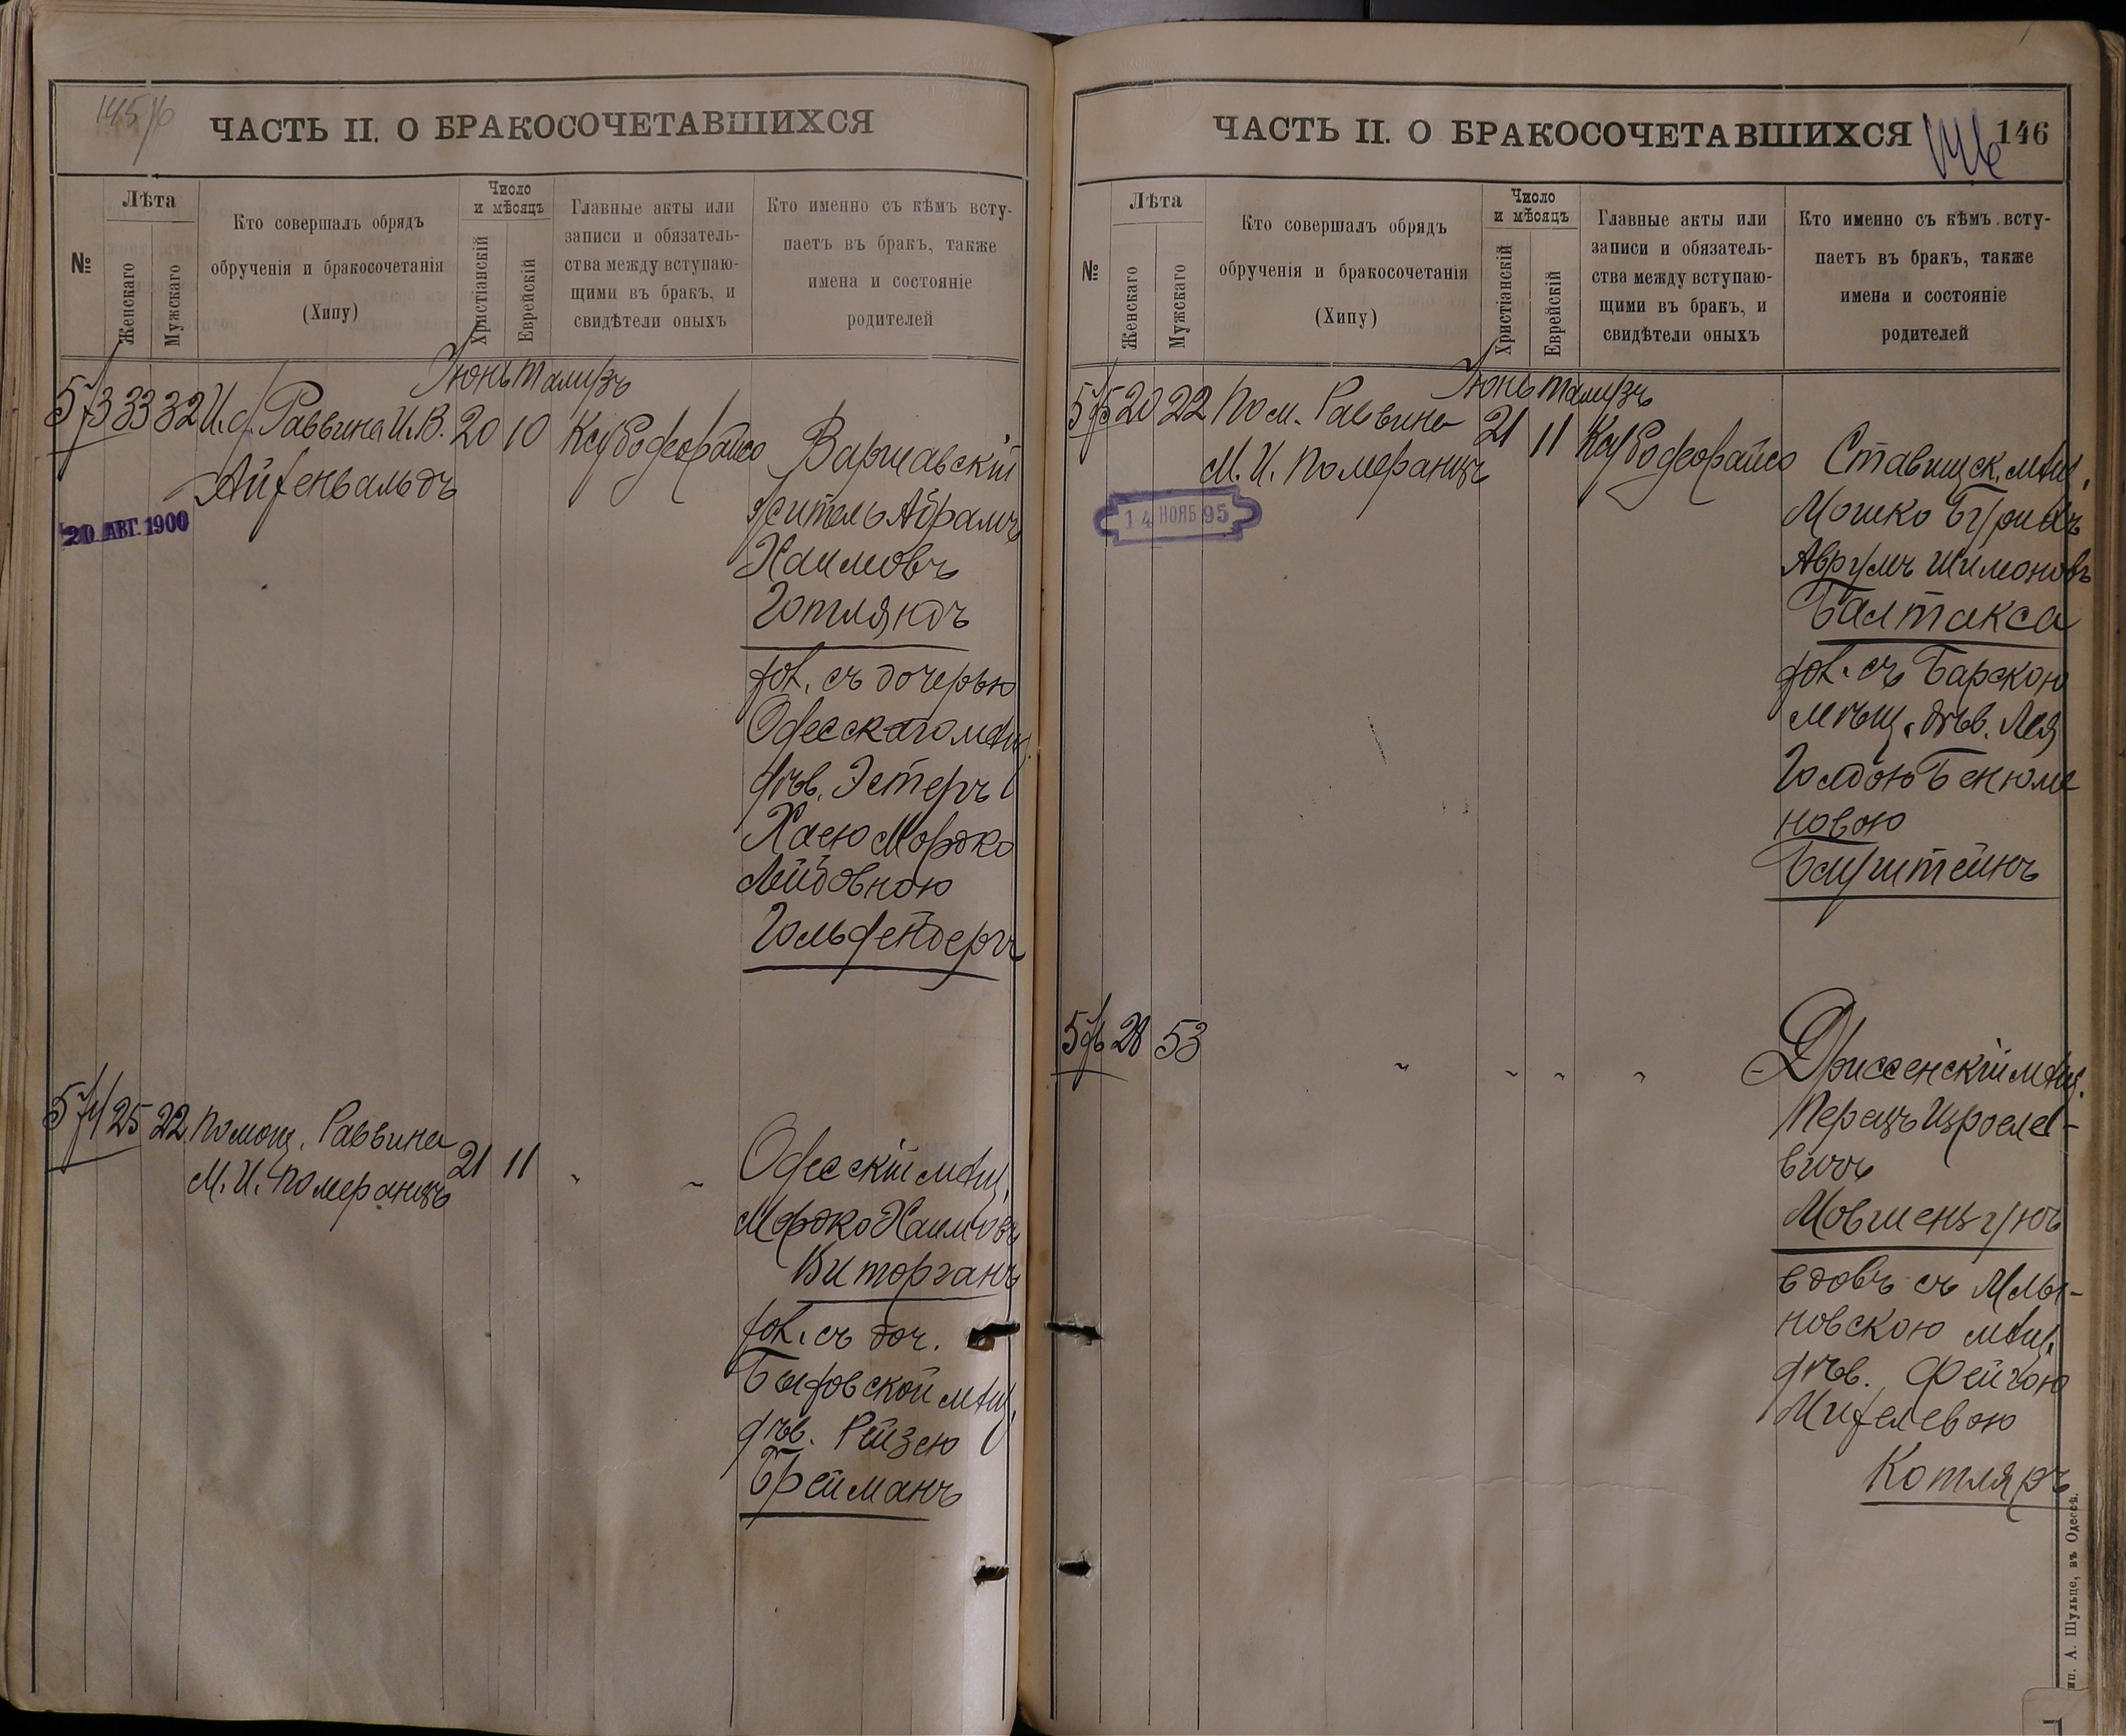 145/6
ЧАСТЬ II. О БРАКОСОЧЕТАВШИХСЯ
№
Лѣта
Женскаго
Мужскаго
Кто совершалъ обрядъ
обрученія и бракосочетанія
(Хипу)
Число
и мѣсяцъ
Христіанскій
Еврейскій
Главные акты или
записи и обязатель-
ства между вступаю-
щими въ бракъ, и
свидѣтели оныхъ
Кто именно съ кѣмъ всту-
паетъ въ бракъ, также
имена и состояніе
родителей
Іюнь Тамузъ
573 33 32 И. д. Раввина И. В. 20 10
Айхенвальдъ
20 АВГ. 1900
Варшавскій
житель Абрамъ
Хаимовъ
Готляндъ
хол. съ дочерью
Одесскаго мѣщ.
дѣв. Эстеръ
Хаею Мордко
Лейбовною
Гольденбергъ
574 25 22 Помощ. Раввина 21 11 " "
М. И. Померанцъ
Одесскій мѣщ.
Мордко Хаимовъ
Виторганъ
хол. съ доч.
Быховской мѣщ.
дѣв. Рейзею
Брейманъ
ЧАСТЬ II. О БРАКОСОЧЕТАВШИХСЯ
146
146
№
Лѣта
Женскаго
Мужскаго
Кто совершалъ обрядъ
обрученія и бракосочетанія
(Хипу)
Число
и мѣсяцъ
Христіанскій
Еврейскій
Главные акты или
записи и обязатель-
ства между вступаю-
щими въ бракъ, и
свидѣтели оныхъ
Кто именно съ кѣмъ всту-
паетъ въ бракъ, также
имена и состояніе
родителей
Іюнь Тамузъ
575 20 22 Пом. Раввина 21 11
М. И. Померанцъ
14 НОЯБ 95
Ставищск. мѣщ.
Мошко
Аврумъ Шимоновъ
Балтакса
хол. съ Барскою
мѣщ. дѣв. Лея
Голдою Бенюми
новою
Баумштейнъ
576 28 53 " " " "
Дриссенскій мѣщ.
Перецъ Изроеле-
вичъ
Мовшензунъ
вдовъ съ Млы-
новскою мѣщ.
дѣв. Фейгою
Михелевою
Котляръ
ип. А. Шульце, въ Одессѣ.